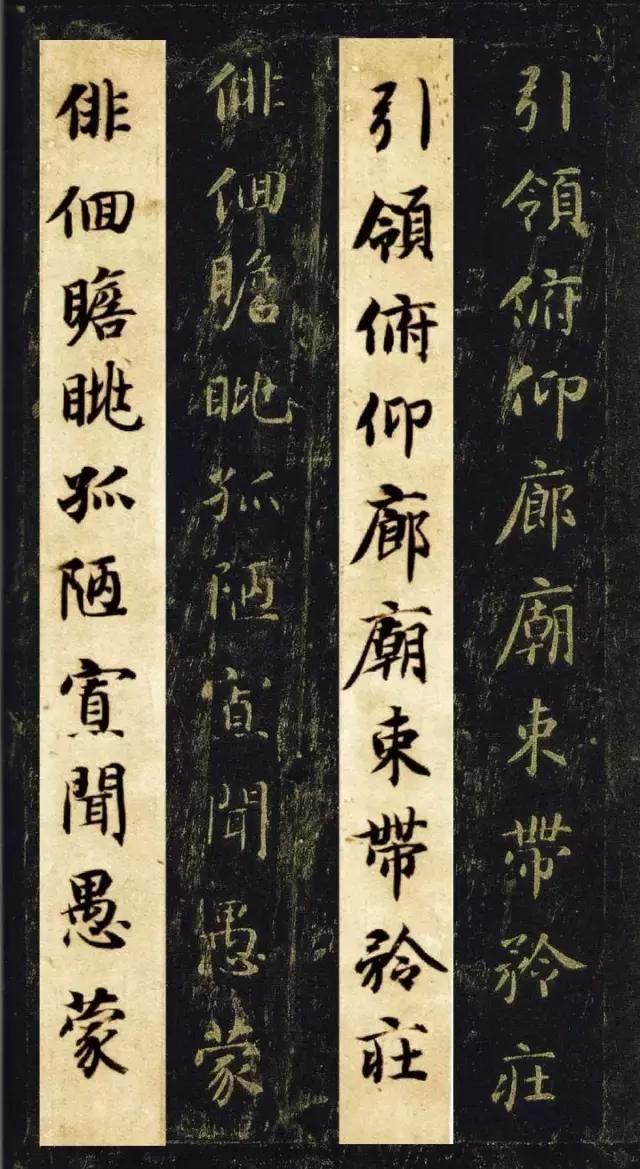 引領俯仰廊廟束帶矜莊
引領俯仰廊廟束帶矜莊
俳佪瞻眺孤陋寡聞愚蒙
俳佪瞻眺孤陋寡聞愚蒙